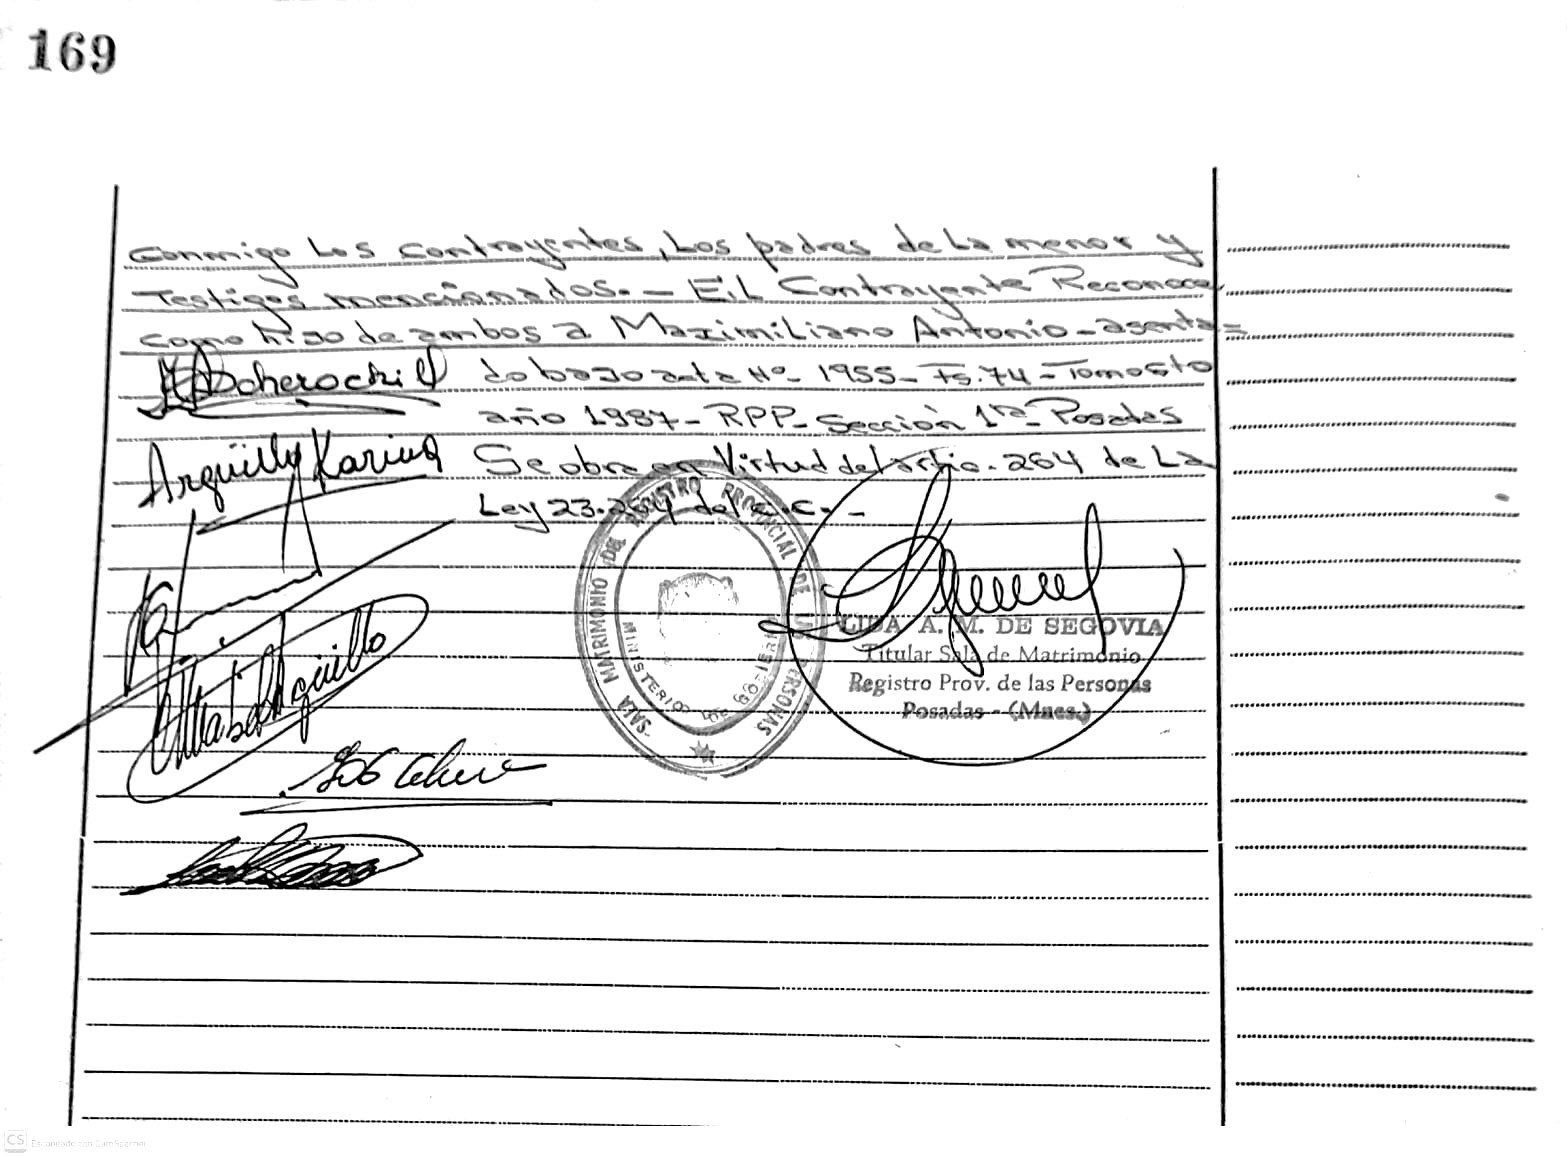 169
Conmigo Los Contrayentes, Los padres de La menor y
Testigos mencionados. - El Contrayente Reconoce
como hijo de ambos a Maximiliano Antonio - asenta=
do bajo acta Nº 1955 - Fs. 74 - Tomo 5to
año 1987 - RPP - Sección 1ra Posadas
Argüello Karina
Se obra en Virtud del artio. 264 de La
Ley 23.264 del C.C. -
SALA MATRIMONIO DEL REGISTRO PROVINCIAL DE LAS PERSONAS
MINISTERIO DE GOBIERNO
LIDA A. M. DE SEGOVIA
Titular Sala de Matrimonio
Registro Prov. de las Personas
Posadas - (Mnes.)
CS Escaneado con CamScanner